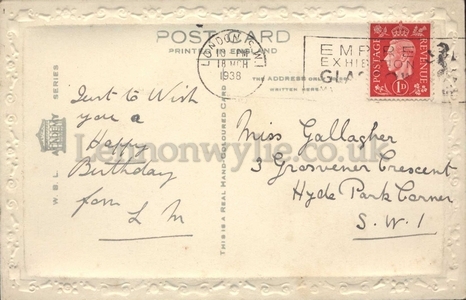 POST CARD
PRINTED IN ENGLAND
THE ADDRESS ONLY TO BE
WRITTEN HERE
LONDON S.W.1
18 MCH
1938
EMPIRE
EXHIBITION
POSTAGE
REVENUE
1D
W.B.L.
SERIES
THIS IS A REAL HAND-COLOURED CARD
Just to Wish
you a
Happy
Birthday
from L M
Miss Gallagher
3 Grosvenor Crescent
Hyde Park Corner
S.W.1
Lennonwylie.co.uk